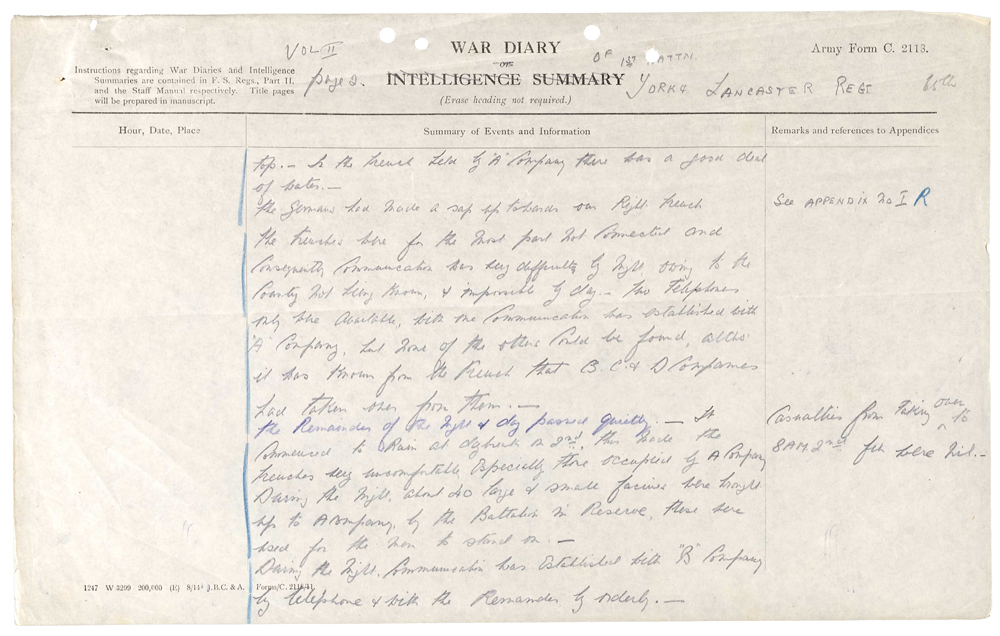 VOL II
WAR DIARY
OF 1ST BATTN.
Army Form C. 2118.
or
Instructions regarding War Diaries and Intelligence
Summaries are contained in F. S. Regs., Part II.
and the Staff Manual respectively. Title pages
will be prepared in manuscript.
page 2.
INTELLIGENCE SUMMARY
YORK & LANCASTER REGT
65th
(Erase heading not required.)
Hour, Date, Place
Summary of Events and Information
Remarks and references to Appendices
top. — In the trench held by "A" Company there was a good deal
of water. —
The Germans had made a sap up towards our Right trench
See APPENDIX No I R
The trenches were for the most part not connected and
consequently communication was very difficult by night, owing to the
country not being known, & impossible by day. — Two telephones
only were available, with one communication was established with
"A" Company, but none of the others could be found, altho'
it was known from the French that B. C. & D Companies
had taken over from them. —
The Remainder of the night & day passed quietly. — It
Casualties from taking over to
commenced to Rain at daybreak on 2nd, this made the
8 AM 2nd Feb were Nil. —
trenches very uncomfortable especially those occupied by A Company
During the night, about 40 large & small fascines were brought
up to A Company, by the Battalion in Reserve, these were
used for the men to stand on. —
During the night, communication was established with "B" Company
1247 W 3299 200,000 (E) 8/14 J.B.C. & A. Forms/C. 2118/11.
by telephone & with the Remainder by orderly. —